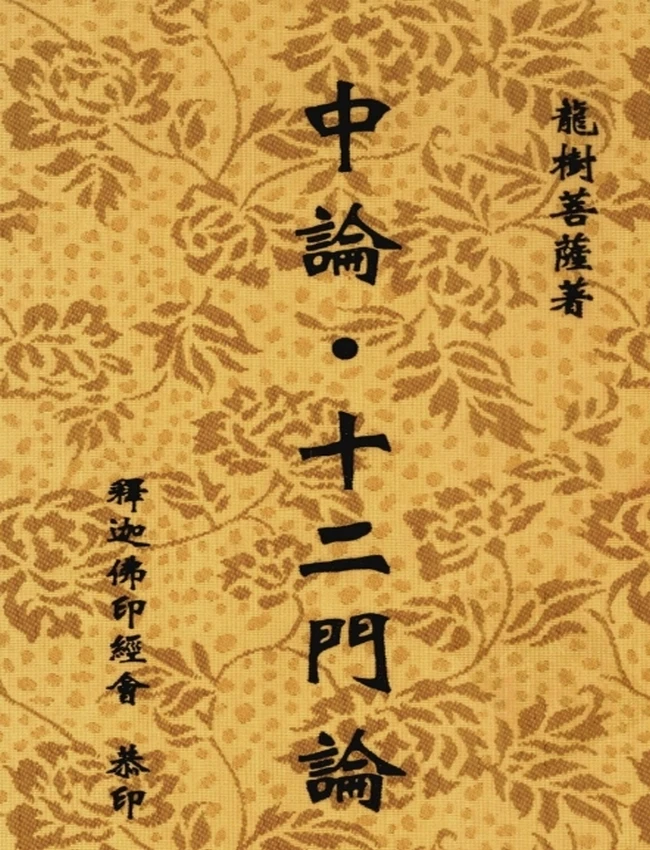 龍樹菩薩著
中論・十二門論
釋迦佛印經會 恭印